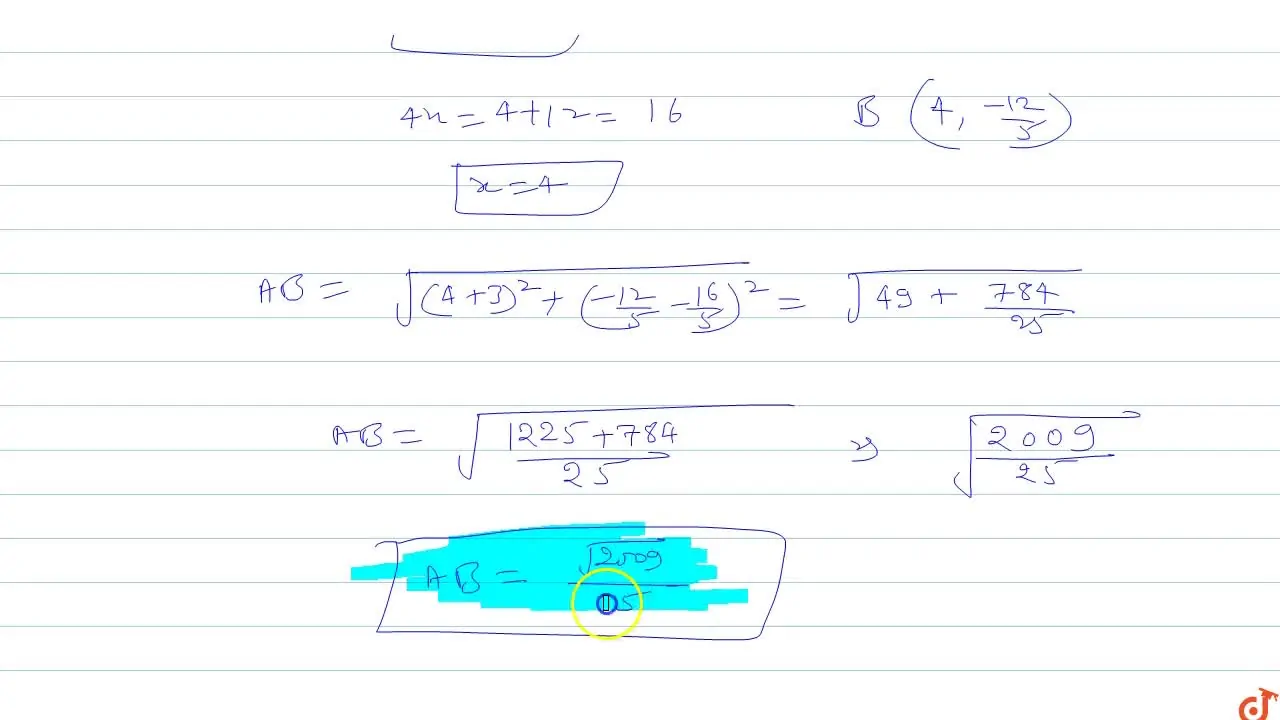 4x = 4+12 = 16 B (4, -12/5)
x = 4
AB = √((4+3)² + (-12/5 - 16/5)²) = √(49 + 784/25)
AB = √((1225+784)/25) ⇒ √(2009/25)
AB = √2009/5